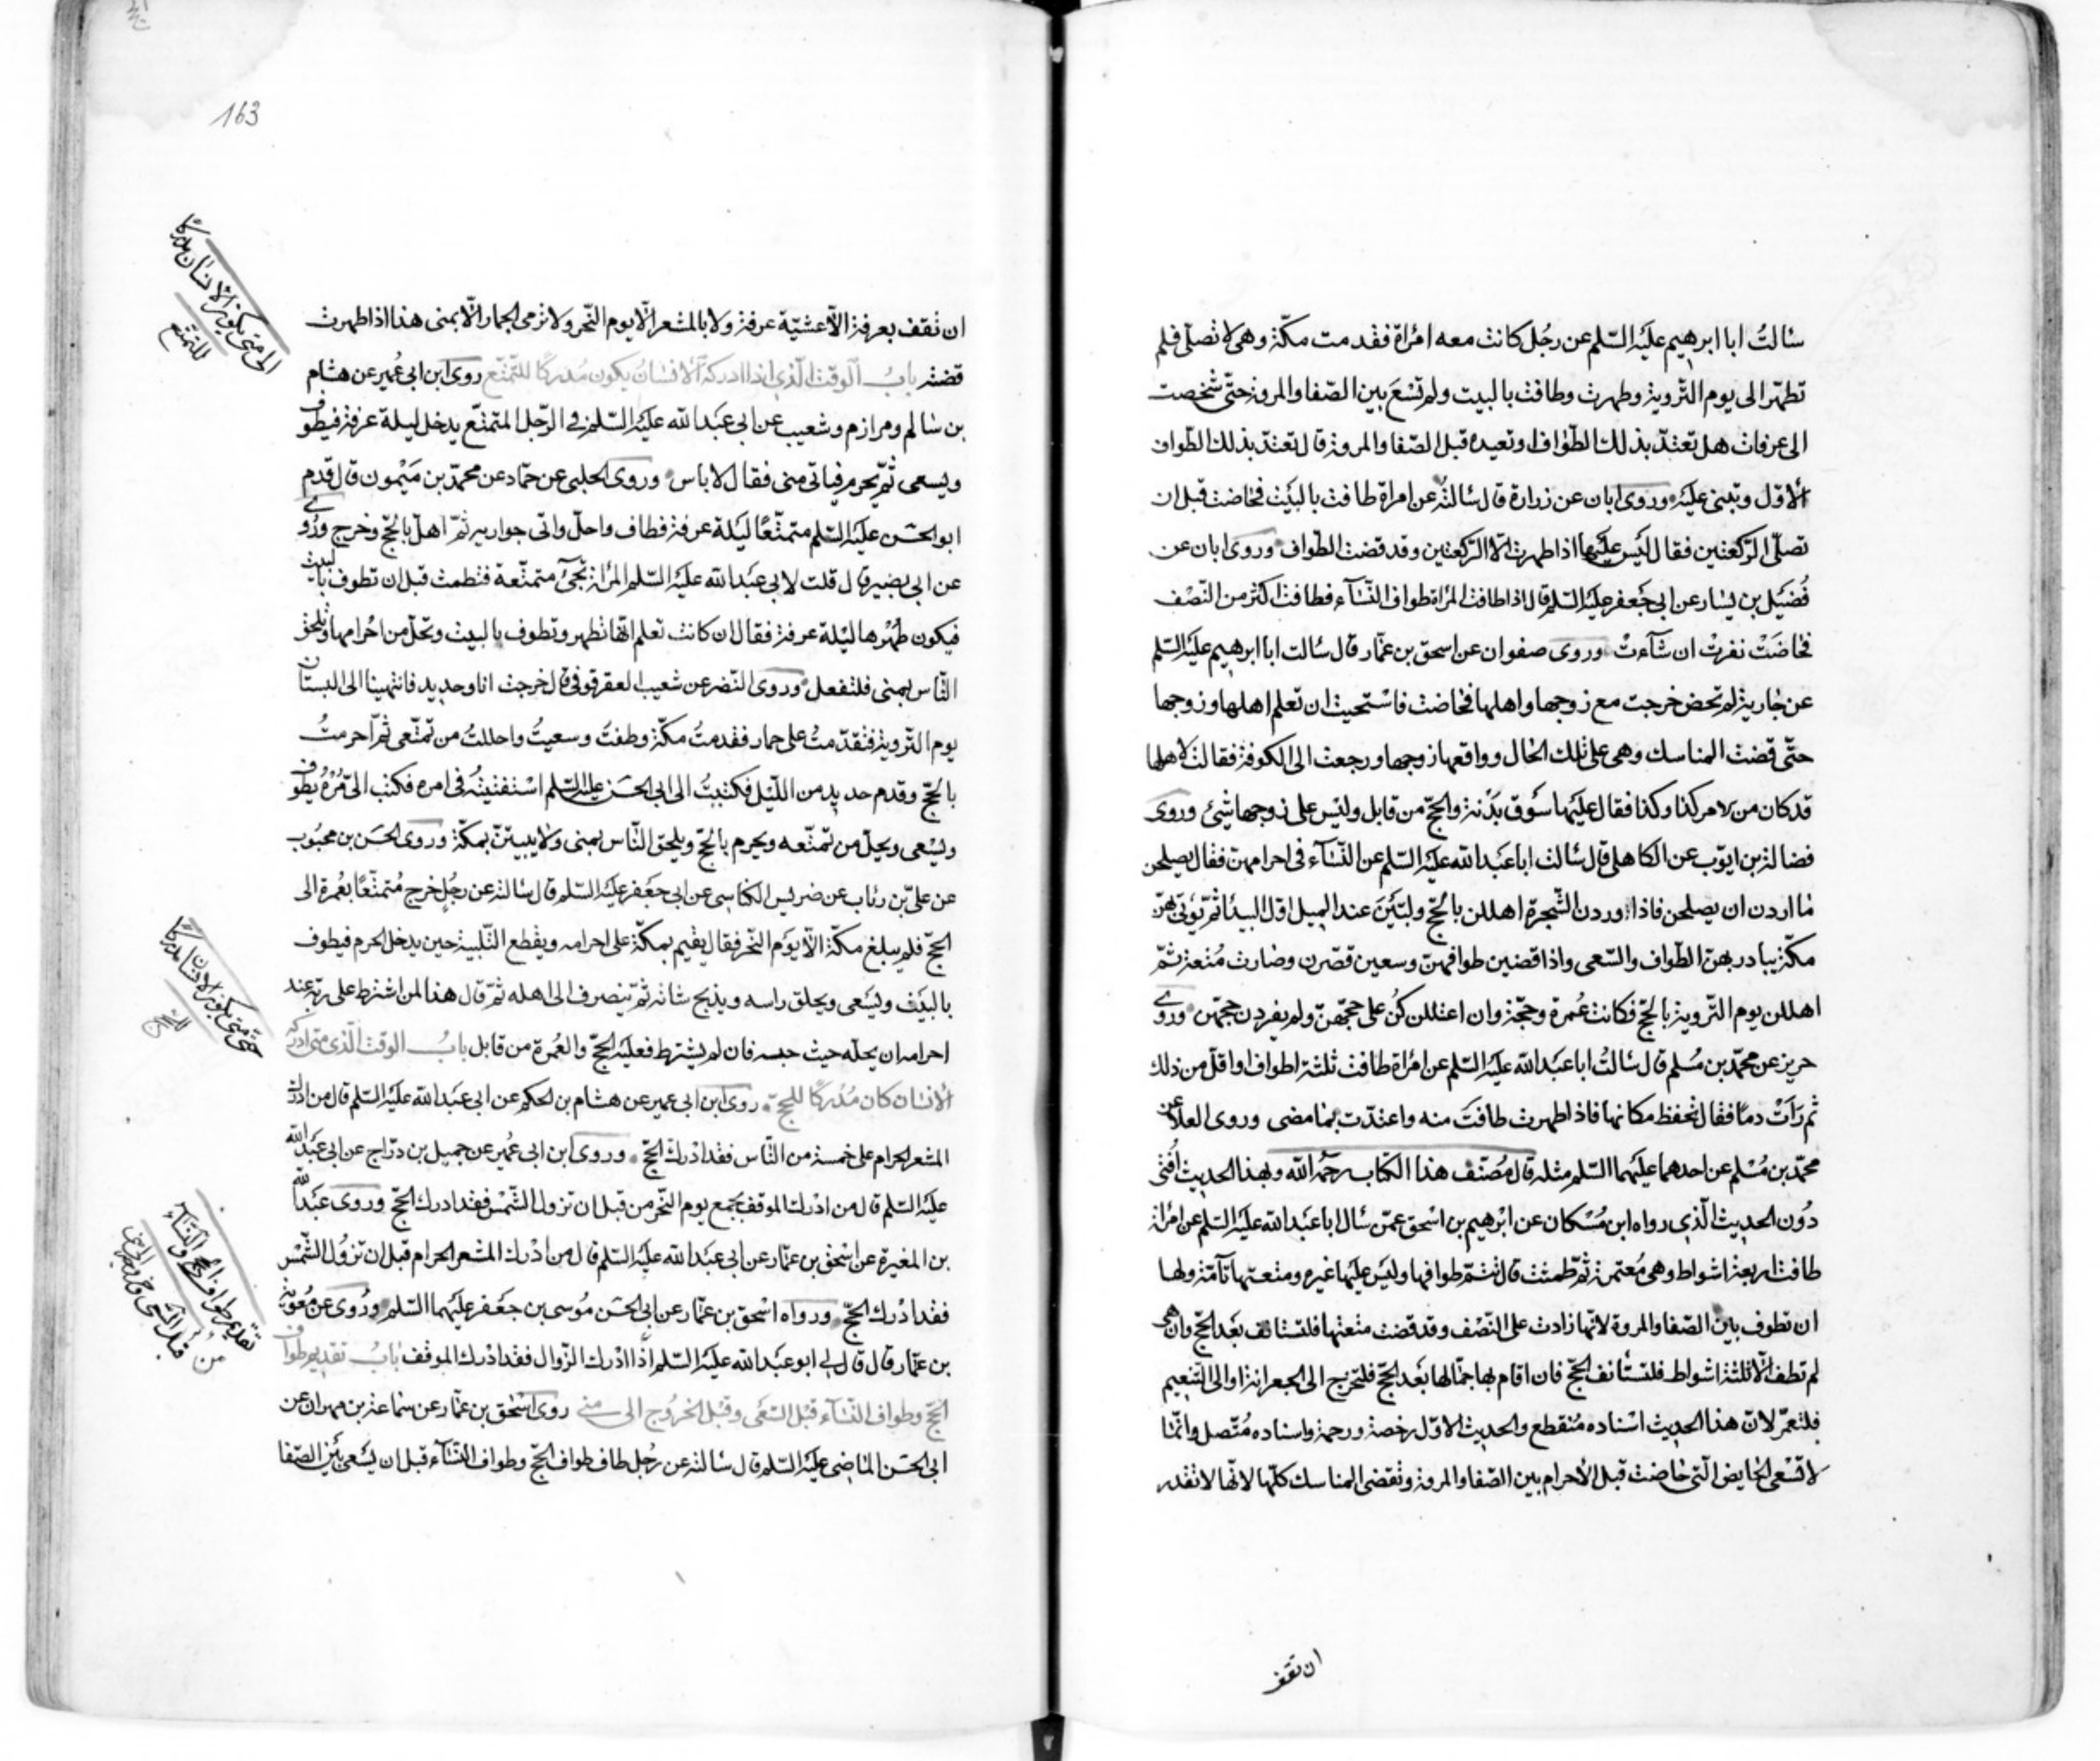 سالتُ ابا ابرهيم عليه السّلم عن رجُل كانت معه امراة فقدمت مكّة وهي لا تصلّي فلم
تطهّر الى يوم التّروية وطهرت وطافت بالبيت ولم تسْعَ بين الصّفا والمروة حتّى شخصت
الى عرفات هل تعتدّ بذلك الطّواف او تعيده قبل الصّفا والمروة قال تعتدّ بذلك الطّواف
الاوّل وتبنى عليه وروى ابان عن زرارة قال سالته عن امراة طافت بالبيت فحاضت قبل ان
تصلّي الرّكعتين فقال ليس عليها اذا طهرت الّا الرّكعتين وقد قضت الطّواف وروى ابان عن
فُضيل بن يسار عن ابي جعفر عليه السّلم قال اذا طافت المراة طواف النّساء فطافت اكثر من النّصْف
فحاضَتْ نفرتْ ان شآءتْ وروى صفوان عن اسحق بن عمّار قال سالت ابا ابرهيم عليه السّلم
عن جارية لم تحض خرجت مع زوجها واهلها فحاضت فاستحيت ان تعلم اهلها وزوجها
حتّى قضت المناسك وهي على تلك الحال وواقعها زوجها ورجعت الى الكوفة فقالت لاهلها
قد كان من الامر كذا وكذا فقال عليها سَوْق بَدَنة والحجّ من قابل وليْس على زوجها شيْئ وروى
فضالة بن ايّوب عن الكاهلي قال سالت ابا عبد الله عليه السّلم عن النّساء في احرامهنّ فقال يصلحن
ما اردن ان يصلحن فاذا وردن الشّجرة اهللن بالحجّ ولبّيْنَ عند الميل اوّل البيداء ثم يؤتى بهنّ
مكّة يبادر بهنّ الطّواف والسّعى واذا قضين طوافهنّ وسعين قصّرن وصارت مُتعة ثمّ
اهللن يوم التّروية بالحجّ فكانت عُمرة وحجّة وان اعتللن كُن على حجّهنّ ولم يفردن حجّهنّ وروى
حريز عن محمّد بن مُسْلم قال سالتُ ابا عبد الله عليه السّلم عن امراة طافت ثلثة اطواف او اقلّ من ذلك
ثم رَاَتْ دمًا فقال تحفظ مكانها فاذا طهرت طافت منه واعتدّت بما مضى وروى العلا عن
محمّد بن مُسْلم عن احدهما عليهما السّلم مثله قال مُصنّف هذا الكتاب رحمه الله وبهذا الحديث اُفتى
دُون الحديث الّذي رواه ابن مُسْكان عن ابْرهيم بن اسْحق عمّن سال ابا عبد الله عليه السّلم عن امراة
طافت اربعة اشواط وهي مُعتمرة ثمّ طمثت قال تتمّ طوافها وليْس عليها غيره ومتعتها تآمّة ولها
ان تطوف بين الصّفا والمروة لانّها زادت على النّصْف وقد قضت متعتها فلتستانف بعد الحجّ وان هي
لم تطف الّا ثلثة اشواط فلتستانف الحجّ فان اقام بها جمّالها بعد الحجّ فلتخرج الى الجعرانة او الى التّنعيم
فلتعمّر لانّ هذا الحديث اسْناده مُنقطع والحديث الاوّل رخصة ورحمة واسناده مُتّصل وانّما
لا تسْعى الحايض الّتي حاضت قبل الاحرام بين الصّفا والمروة وتقضى المناسك كلّها لانّها لا تقدر
ان تقف
163
ان تقف بعرفة الّا عشيّة عرفة ولا بالمشعر الّا يوم النّحر ولا ترمى الجمار الّا بمنى هذا اذا طهرت
قضته بابُ الوقت الّذي اذا ادركه الانسان يكون مُدركًا للتّمتّع روى ابن ابى عُمير عن هشام
بن سالم ومرازم وشعيب عن ابى عبد الله عليه السّلم في الرّجل المتمتّع يدخل ليلة عرفة فيطوف
ويسعى ثمّ يحرم فياتى منى فقال لا باس وروى الحلبى عن حمّاد عن محمّد بن مَيْمون قال قدم
ابو الحسن عليه السّلم متمتّعًا ليلة عرفة فطاف واحلّ واتى جواريه ثمّ اهلّ بالحجّ وخرج وروى
عن ابي بصير قال قلت لابي عبد الله عليه السّلم المراة تجيئ متمتّعة فتطمث قبل ان تطوف بالبيت
فيكون طُهْرها ليْلة عرفة فقال ان كانت تعلم انّها تطهر وتطوف بالبيت وتحلّ من احْرامها وتلحق
النّاس بمنى فلتفعل وروى النّضر عن شعيب العقرقوفي قال خرجت انا وحديد فانتهينا الى البستان
يوم التّروية فتقدّمتُ على حمار فقدمتُ مكّة وطفتُ وسعيتُ واحللتُ من تمتّعى ثمّ احرمتُ
بالحجّ وقدم حديد من اللّيل فكتبتُ الى ابى الحسن عليه السّلم اسْتفتيته في امره فكتب الىّ مُرْهُ يطوف
ويسْعى ويحلّ من تمتّعه ويحرم بالحجّ ويلحق النّاس بمنى ولا يبيتنّ بمكّة وروى الحسن بن محبُوب
عن علىّ بن رئاب عن ضريس الكناسى عن ابى جعفر عليه السّلم قال سالته عن رجُل خرج مُتمتّعًا بعُمرة الى
الحجّ فلم يبلغ مكّة الّا يوم النّحر فقال يقيم بمكّة على احرامه ويقْطع التّلبية حين يدخل الحرم فيطوف
بالبيت ويسْعى ويحلق راسه ويذبح شاته ثمّ ينصرف الى اهله ثمّ قال هذا لمن اشترط على ربّه عند
احرامه ان يحلّه حيث حبسه فان لم يشترط فعليه الحجّ والعُمرة من قابل بابُ الوقت الّذى متى ادركه
الانسان كان مُدركًا للحجّ روى ابن ابى عمير عن هشام بن الحكم عن ابى عبد الله عليه السّلم قال من ادرك
المشعر الحرام على خمسة من النّاس فقد ادْرك الحجّ وروى ابن ابى عُمير عن جميل بن درّاج عن ابى عبد الله
عليه السّلم قال من ادْرك الموقف بجمع يوم النّحر من قبل ان تزول الشّمْس فقد ادرك الحجّ وروى عبد الله
بن المغيرة عن اسْحق بن عمّار عن ابى عبد الله عليه السّلم قال من ادْرك المشعر الحرام قبل ان تزُول الشّمْس
فقد ادْرك الحجّ ورواه اسْحق بن عمّار عن ابى الحسن مُوسى بن جعْفر عليهما السّلم ورُوى عن مُعوية
بن عمّار قال قال لي ابو عبد الله عليه السّلم اذا ادْرك الزّوال فقد ادْرك الموقف بابُ تقديم طواف
الحجّ وطواف النّساء قبْل السّعْى وقبْل الخُروج الى منى روى اسْحق بن عمّار عن سماعة بن مهران عن
ابى الحسن الماضى عليه السّلم قال سالته عن رجُل طاف طواف الحجّ وطواف النّساء قبل ان يسْعى بيْن الصّفا
الى متى يكون الانسان مدركًا
للتمتع
حتى متى يكون الانسان مدركًا
للحج
تقديم طواف الحج والنساء
من قبل السعى